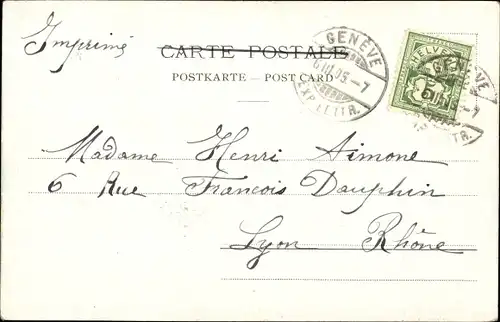 Imprimé
CARTE POSTALE
POSTKARTE – POST CARD
GENÈVE
EXP. LETTR.
HELVETIA
5
GENÈVE
Madame Henri Aimone
6 Rue François Dauphin
Lyon Rhône